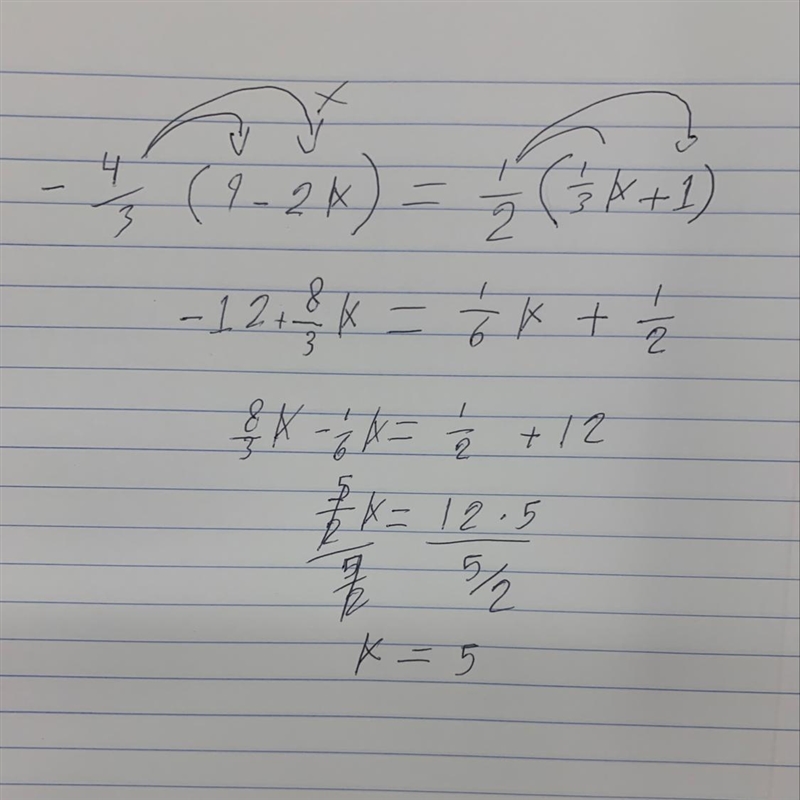 -4/3 (9 - 2k) = 1/2 (1/3 k + 1)
-12 + 8/3 k = 1/6 k + 1/2
8/3 k - 1/6 k = 1/2 + 12
(5/2 k)/(5/2) = (12.5)/(5/2)
k = 5